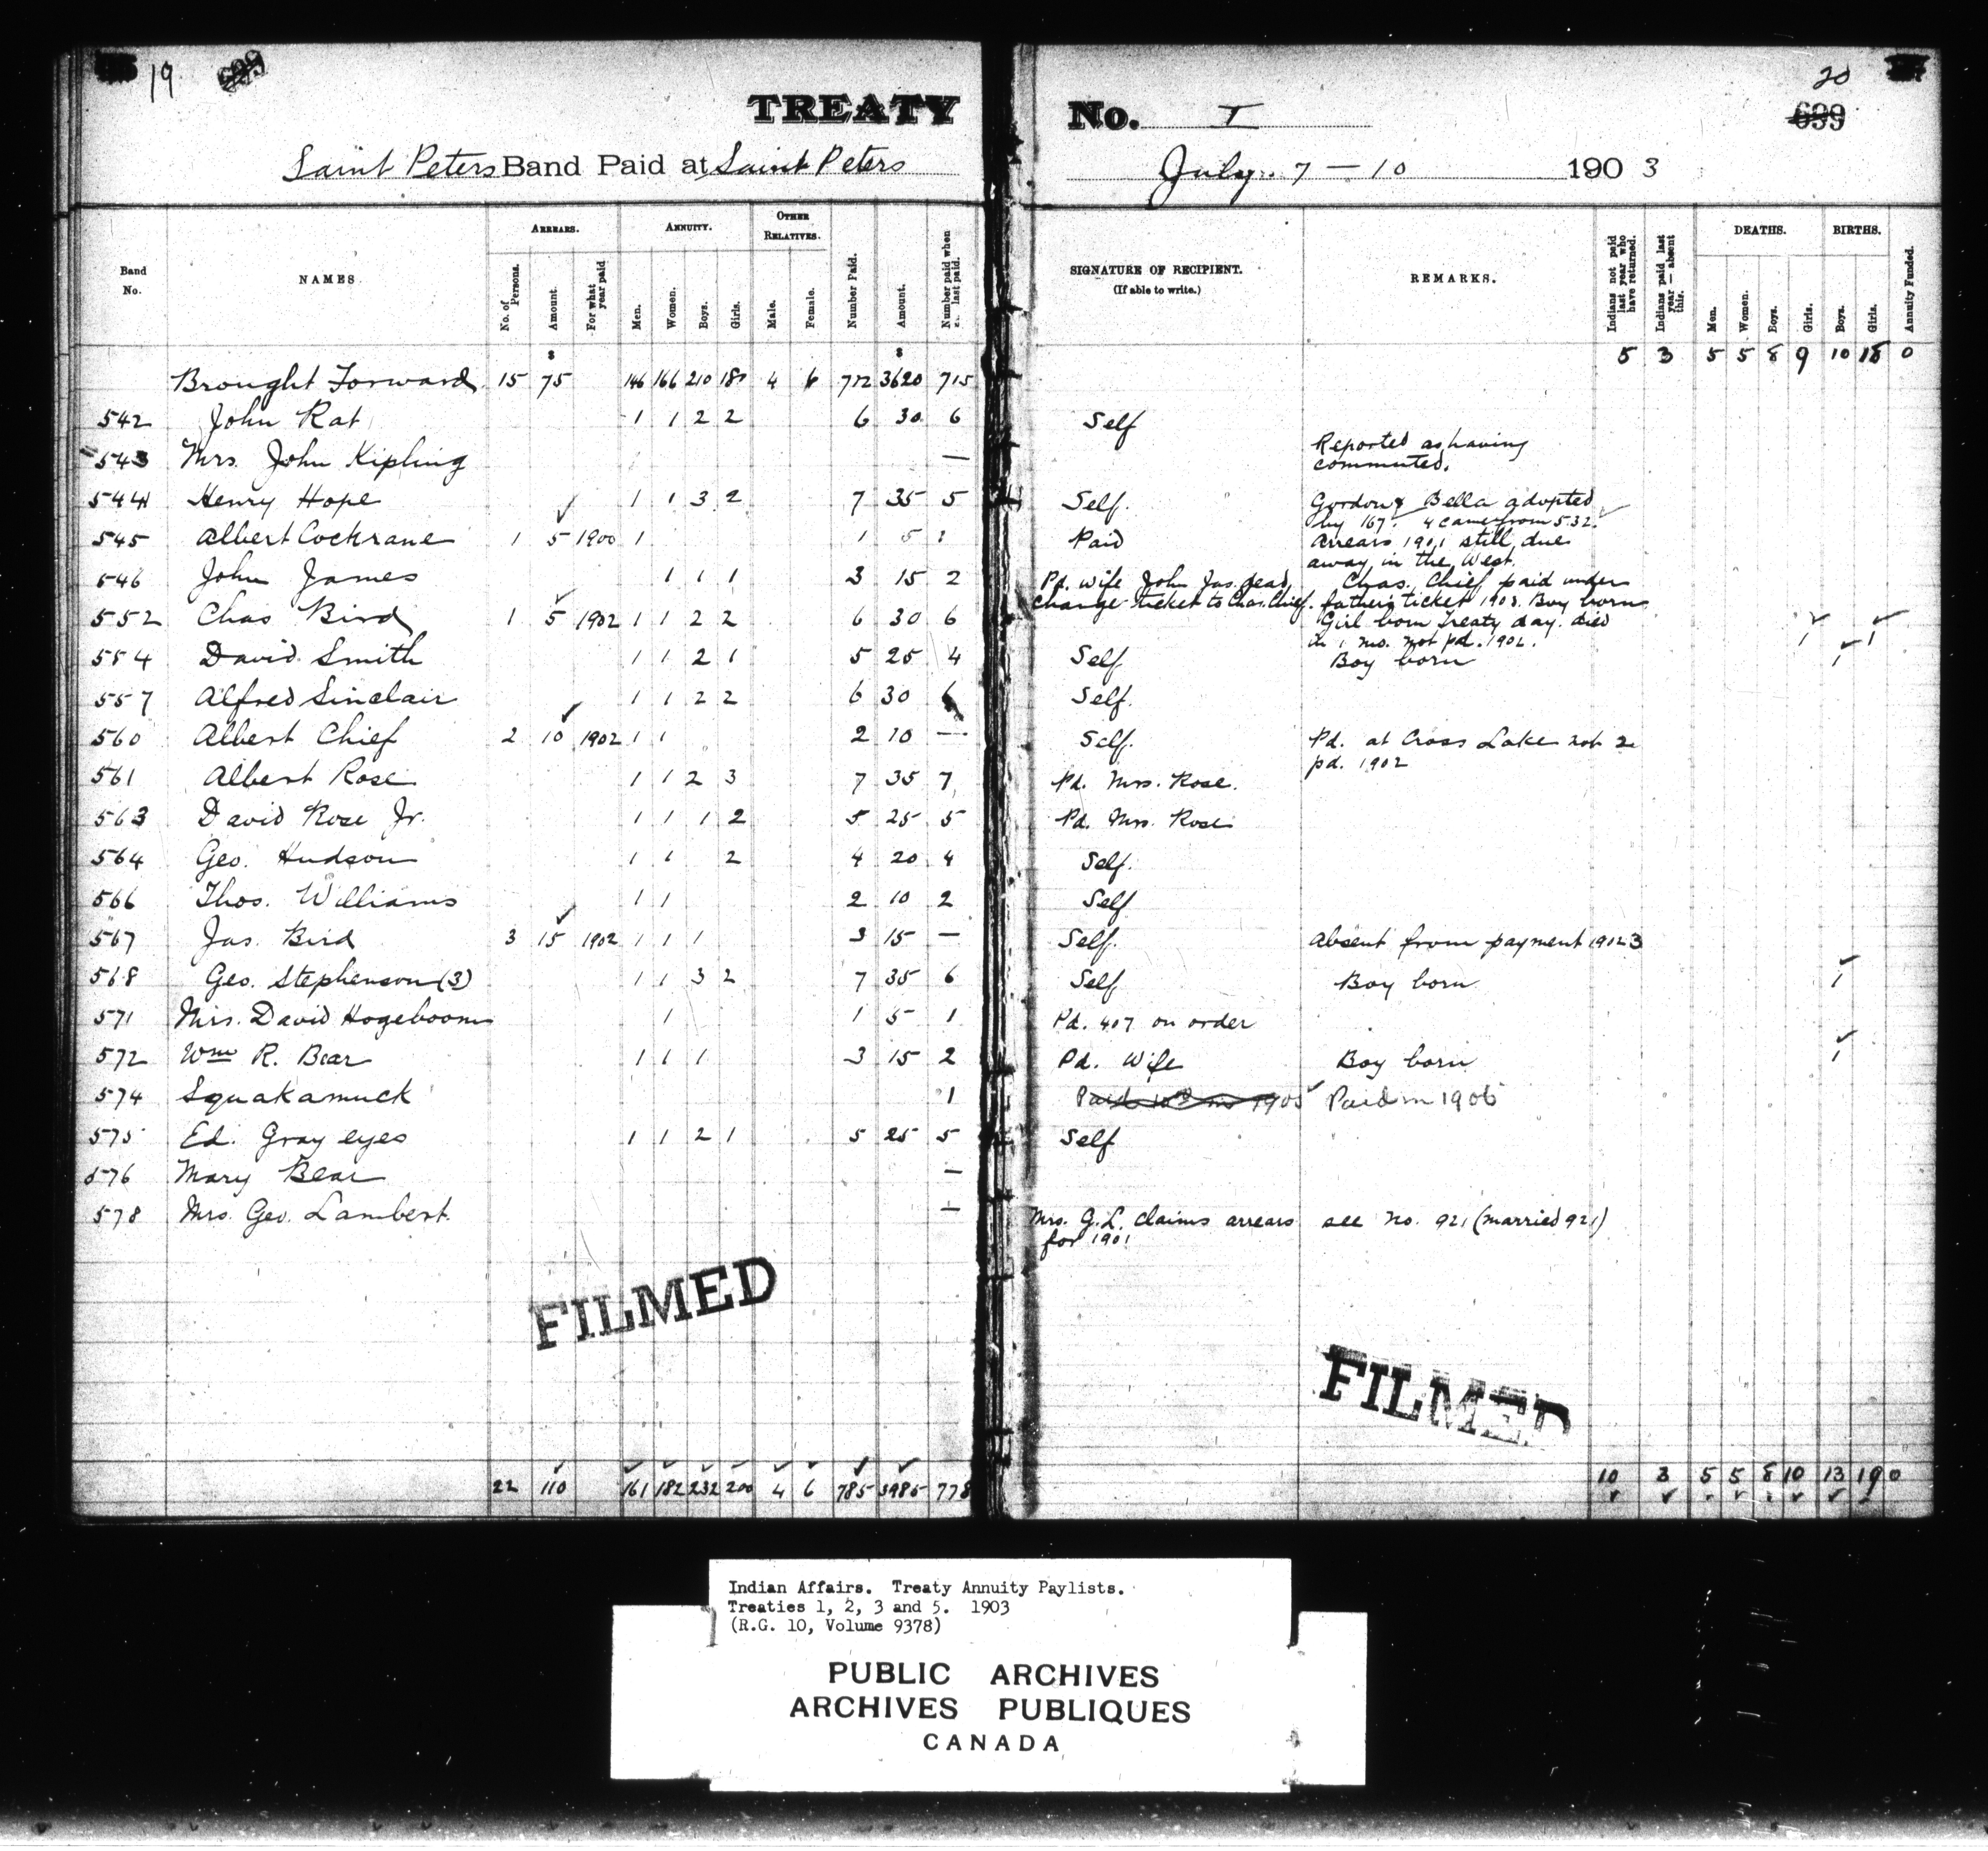 19
TREATY No. I
20
699
Saint Peters Band Paid at Saint Peters July 7 — 10 1903
Band No. NAMES. ARREARS. No. of Persons. Amount. For what year paid ANNUITY. Men. Women. Boys. Girls. OTHER RELATIVES. Male. Female. Number Paid. Amount. Number paid when last paid. SIGNATURE OF RECIPIENT. (If able to write.) REMARKS. Indians not paid last year who have returned. Indians paid last year — absent this. DEATHS. Men. Women. Boys. Girls. BIRTHS. Boys. Girls. Annuity Funded.
$ $ 5 3 5 5 8 9 10 18 0
Brought Forward 15 75 146 166 210 4 6 3620 715
542 John Rat 1 1 2 2 6 30 6 Self
543 Mrs. John Kipling — Reported as having
commuted.
544 Henry Hope 1 1 3 2 7 35 5 Self. Gordon & Bella adopted
by 167. 4 came from 532.
545 Albert Cockrane 1 5 1900 1 1 5 1 Paid Arrears 1901 still due
away in the West.
546 John James 1 1 1 3 15 2 Pd. wife John Jas. dead Chas. Chief paid under
change ticket to Chas. Chief. father's ticket 1903. Boy born
552 Chas Bird 1 5 1902 1 1 2 2 6 30 6 Girl born Treaty day. died 1 1
in 1 mo. not pd. 1902.
554 David Smith 1 1 2 1 5 25 4 Self Boy born 1
557 Alfred Sinclair 1 1 2 2 6 30 6 Self.
560 Albert Chief 2 10 1902 1 1 2 10 — Self. Pd. at Cross Lake not 2
pd. 1902
561 Albert Rose 1 1 2 3 7 35 7 Pd. Mrs. Rose.
563 David Rose Jr. 1 1 1 2 5 25 5 Pd. Mrs. Rose
564 Geo. Hudson 1 1 2 4 20 4 Self.
566 Thos. Williams 1 1 2 10 2 Self
567 Jas. Bird 3 15 1902 1 1 1 3 15 — Self. Absent from payment 1902 3
568 Geo. Stephenson (3) 1 1 3 2 7 35 6 Self Boy born 1
571 Mrs. David Hogeboom 1 1 5 1 Pd. 407 on order
572 Wm R. Bear 1 1 1 3 15 2 Pd. Wife Boy born 1
574 Squakamuck 1 Paid in 1906
575 Ed. Gray eyes 1 1 2 1 5 25 5 Self
576 Mary Bear —
578 Mrs. Geo. Lambert. — Mrs. G.L. claims arrears see No. 921 (married 921)
for 1901
FILMED
FILMED
22 110 161 182 232 200 4 6 785 3985 778 10 3 5 5 8 10 13 19 0
Indian Affairs. Treaty Annuity Paylists.
Treaties 1, 2, 3 and 5. 1903
(R.G. 10, Volume 9378)
PUBLIC ARCHIVES
ARCHIVES PUBLIQUES
CANADA